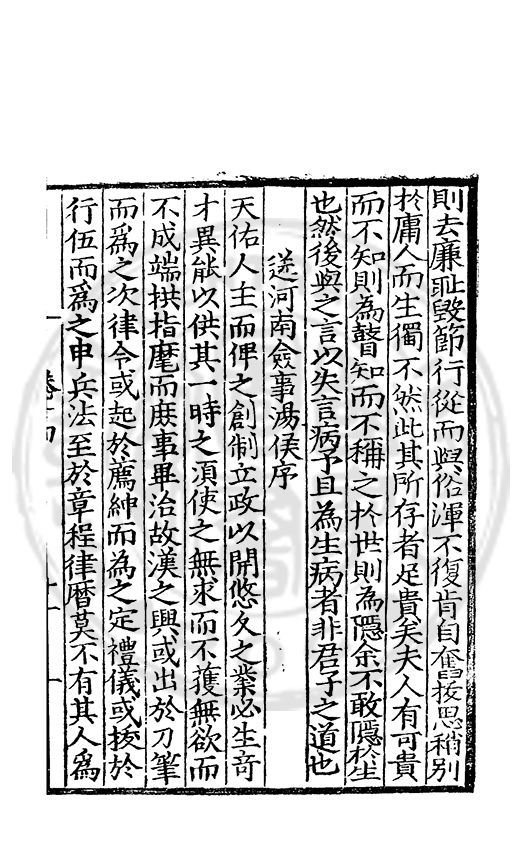 則去廉耻毀節行從而與俗渾不復肯自奮拔思稍別
於庸人而生獨不然此其所存者足貴矣夫人有可貴
而不知則為瞽知而不稱之於世則為隱余不敢隱於生
也然後與之言以失言病予且為生病者非君子之道也
送河南僉事湯侯序
天佑人主而俾之創制立政以開悠久之業必生奇
才異能以供其一時之須使之無求而不獲無欲而
不成端拱指麾而庶事畢治故漢之興或出於刀筆
而爲之次律令或起於薦紳而為之定禮儀或拔於
行伍而爲之申兵法至於章程律曆莫不有其人爲
卷十四
十一